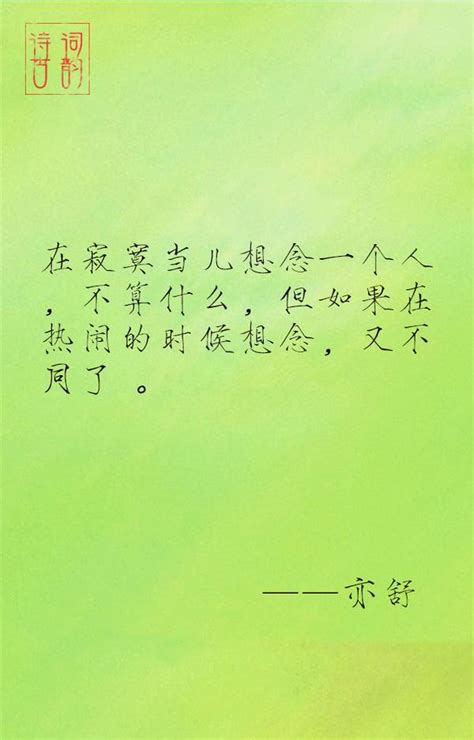 诗词
古韵
在寂寞当儿想念一个人
，不算什么，但如果在
热闹的时候想念，又不
同了。
——亦舒